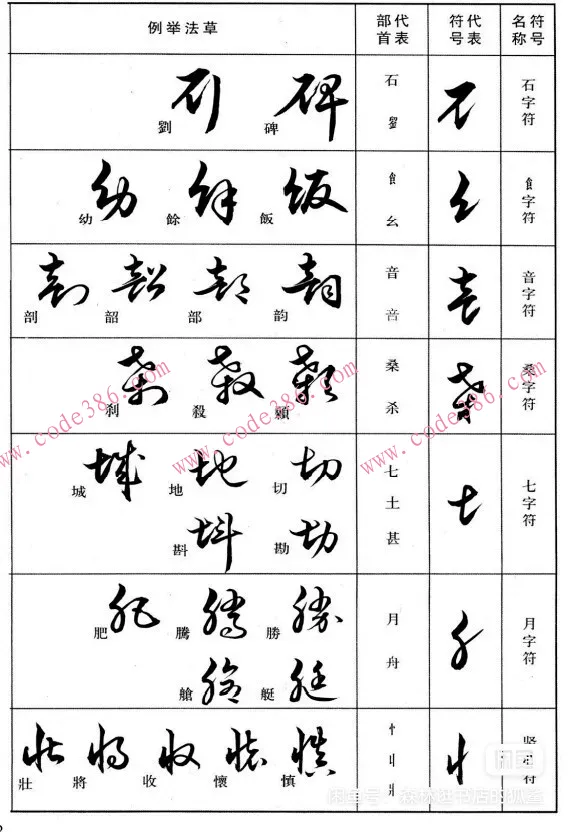 符号名称
代表符号
代表部首
草法举例
石字符
石
碑 劉
飠字符
飠 幺
飯 餘 幼
音字符
音 咅
韵 部 韶 剖
桑字符
桑 杀
顙 殺 刹
七字符
七 土 甚
切 地 城
勘 斟
月字符
月 舟
勝 騰 肥
艇 艙
符
忄 丩 丬
慎 懷 收 將 壯
www.code386.com
www.code386.com
www.code386.com